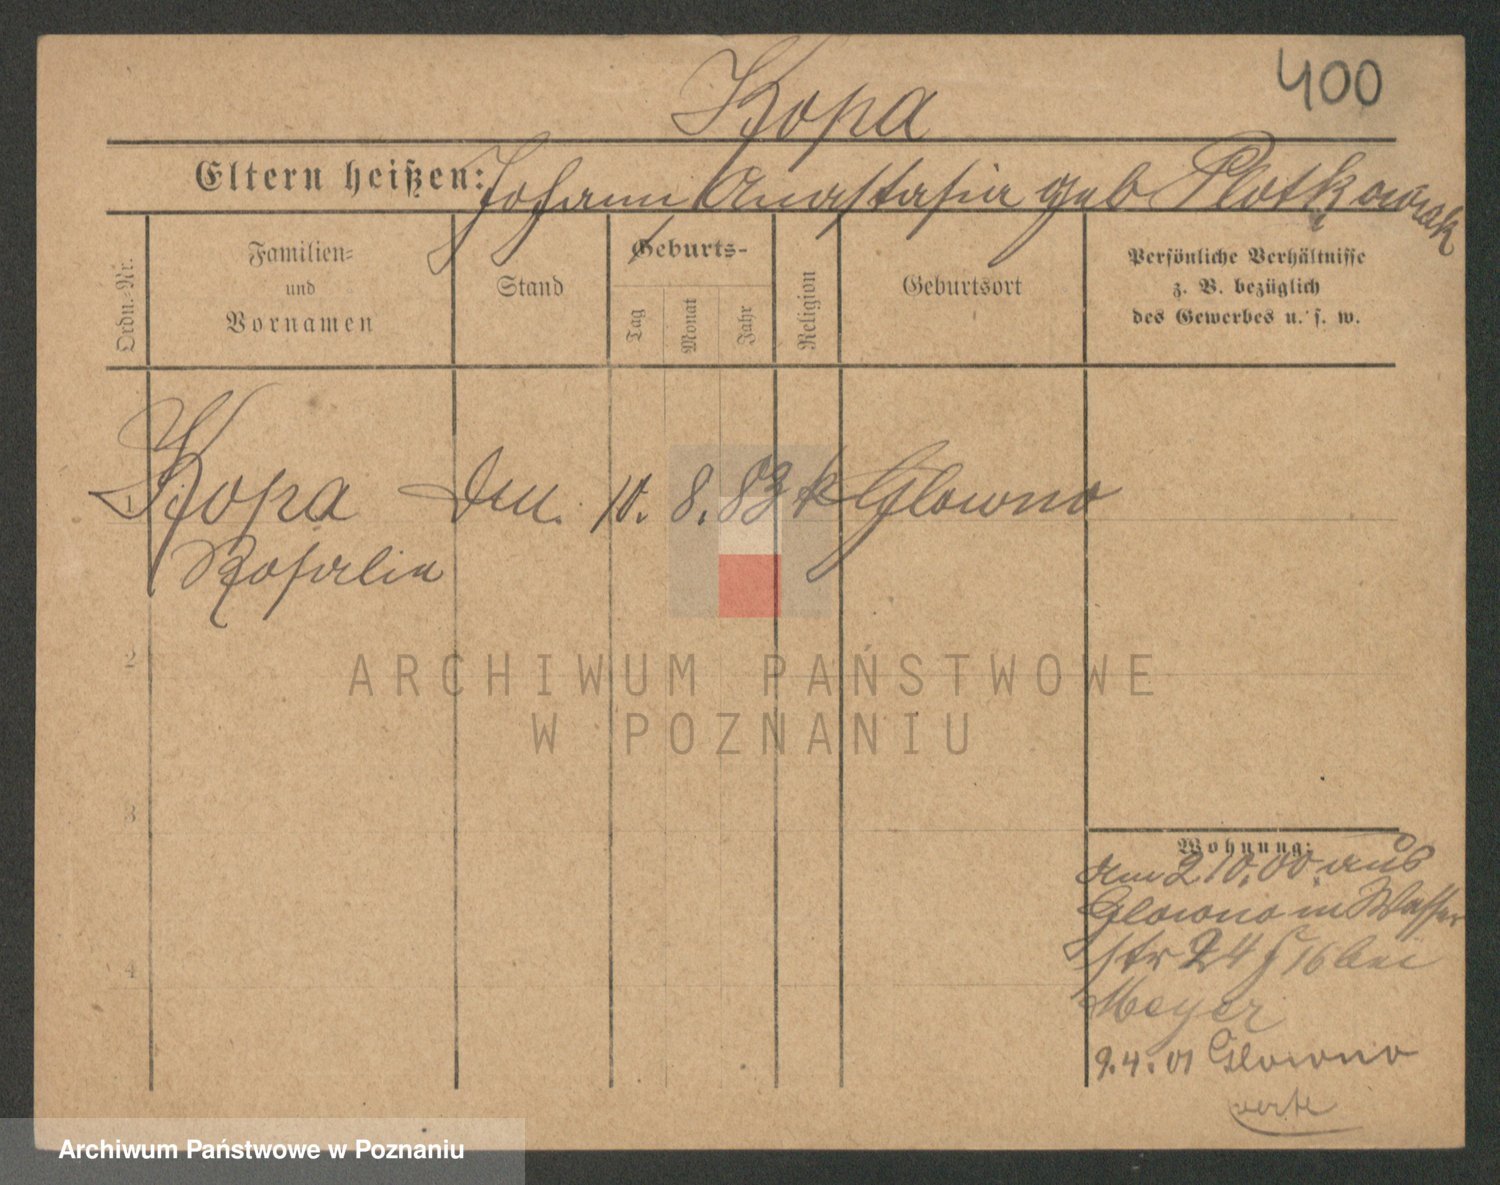 400
Kopa
Eltern heißen: Johann Anastasia geb Plotkowiak
Ordn.-Nr.
Familien-
und
Vornamen
Stand
Geburts-
Tag
Monat
Jahr
Religion
Geburtsort
Persönliche Verhältnisse
z. B. bezüglich
des Gewerbes u. s. w.
1 Kopa 10. 8. 83 k Glowno
Rosalia
2
3
4
Wohnung:
am 2 10. 00. aus
Glowno in Wasser
str 24 bei
Meyer
9. 4. 01 Glowno
ARCHIWUM PAŃSTWOWE
W POZNANIU
Archiwum Państwowe w Poznaniu